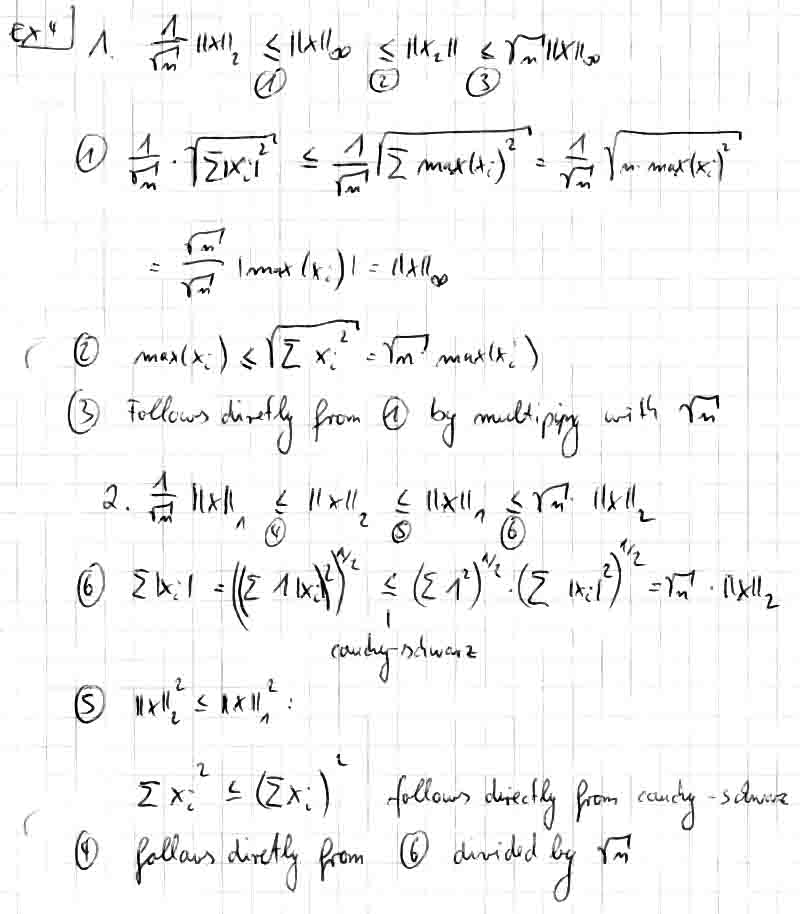 Ex 4 1. 1/√n ||x||₂ ≤ ||x||∞ ≤ ||x₂|| ≤ √n ||x||∞
① ② ③
① 1/√n · √(Σ|xᵢ|²) ≤ 1/√n √(Σ max(xᵢ)²) = 1/√n √(n · max(xᵢ)²)
= √n/√n |max(xᵢ)| = ||x||∞
② max(xᵢ) ≤ √(Σ xᵢ²) = √n max(xᵢ)
③ Follows diretly from ① by multipipy with √n
2. 1/√n ||x||₁ ≤ ||x||₂ ≤ ||x||₁ ≤ √n · ||x||₂
④ ⑤ ⑥
⑥ Σ|xᵢ| = ((Σ 1|xᵢ|)²)^1/2 ≤ (Σ 1²)^1/2 · (Σ |xᵢ|²)^1/2 = √n · ||x||₂
cauchy-schwarz
⑤ ||x||₂² ≤ ||x||₁² :
Σ xᵢ² ≤ (Σ xᵢ)² follows directly from cauchy-schwarz
④ follows diretly from ⑥ divided by √n